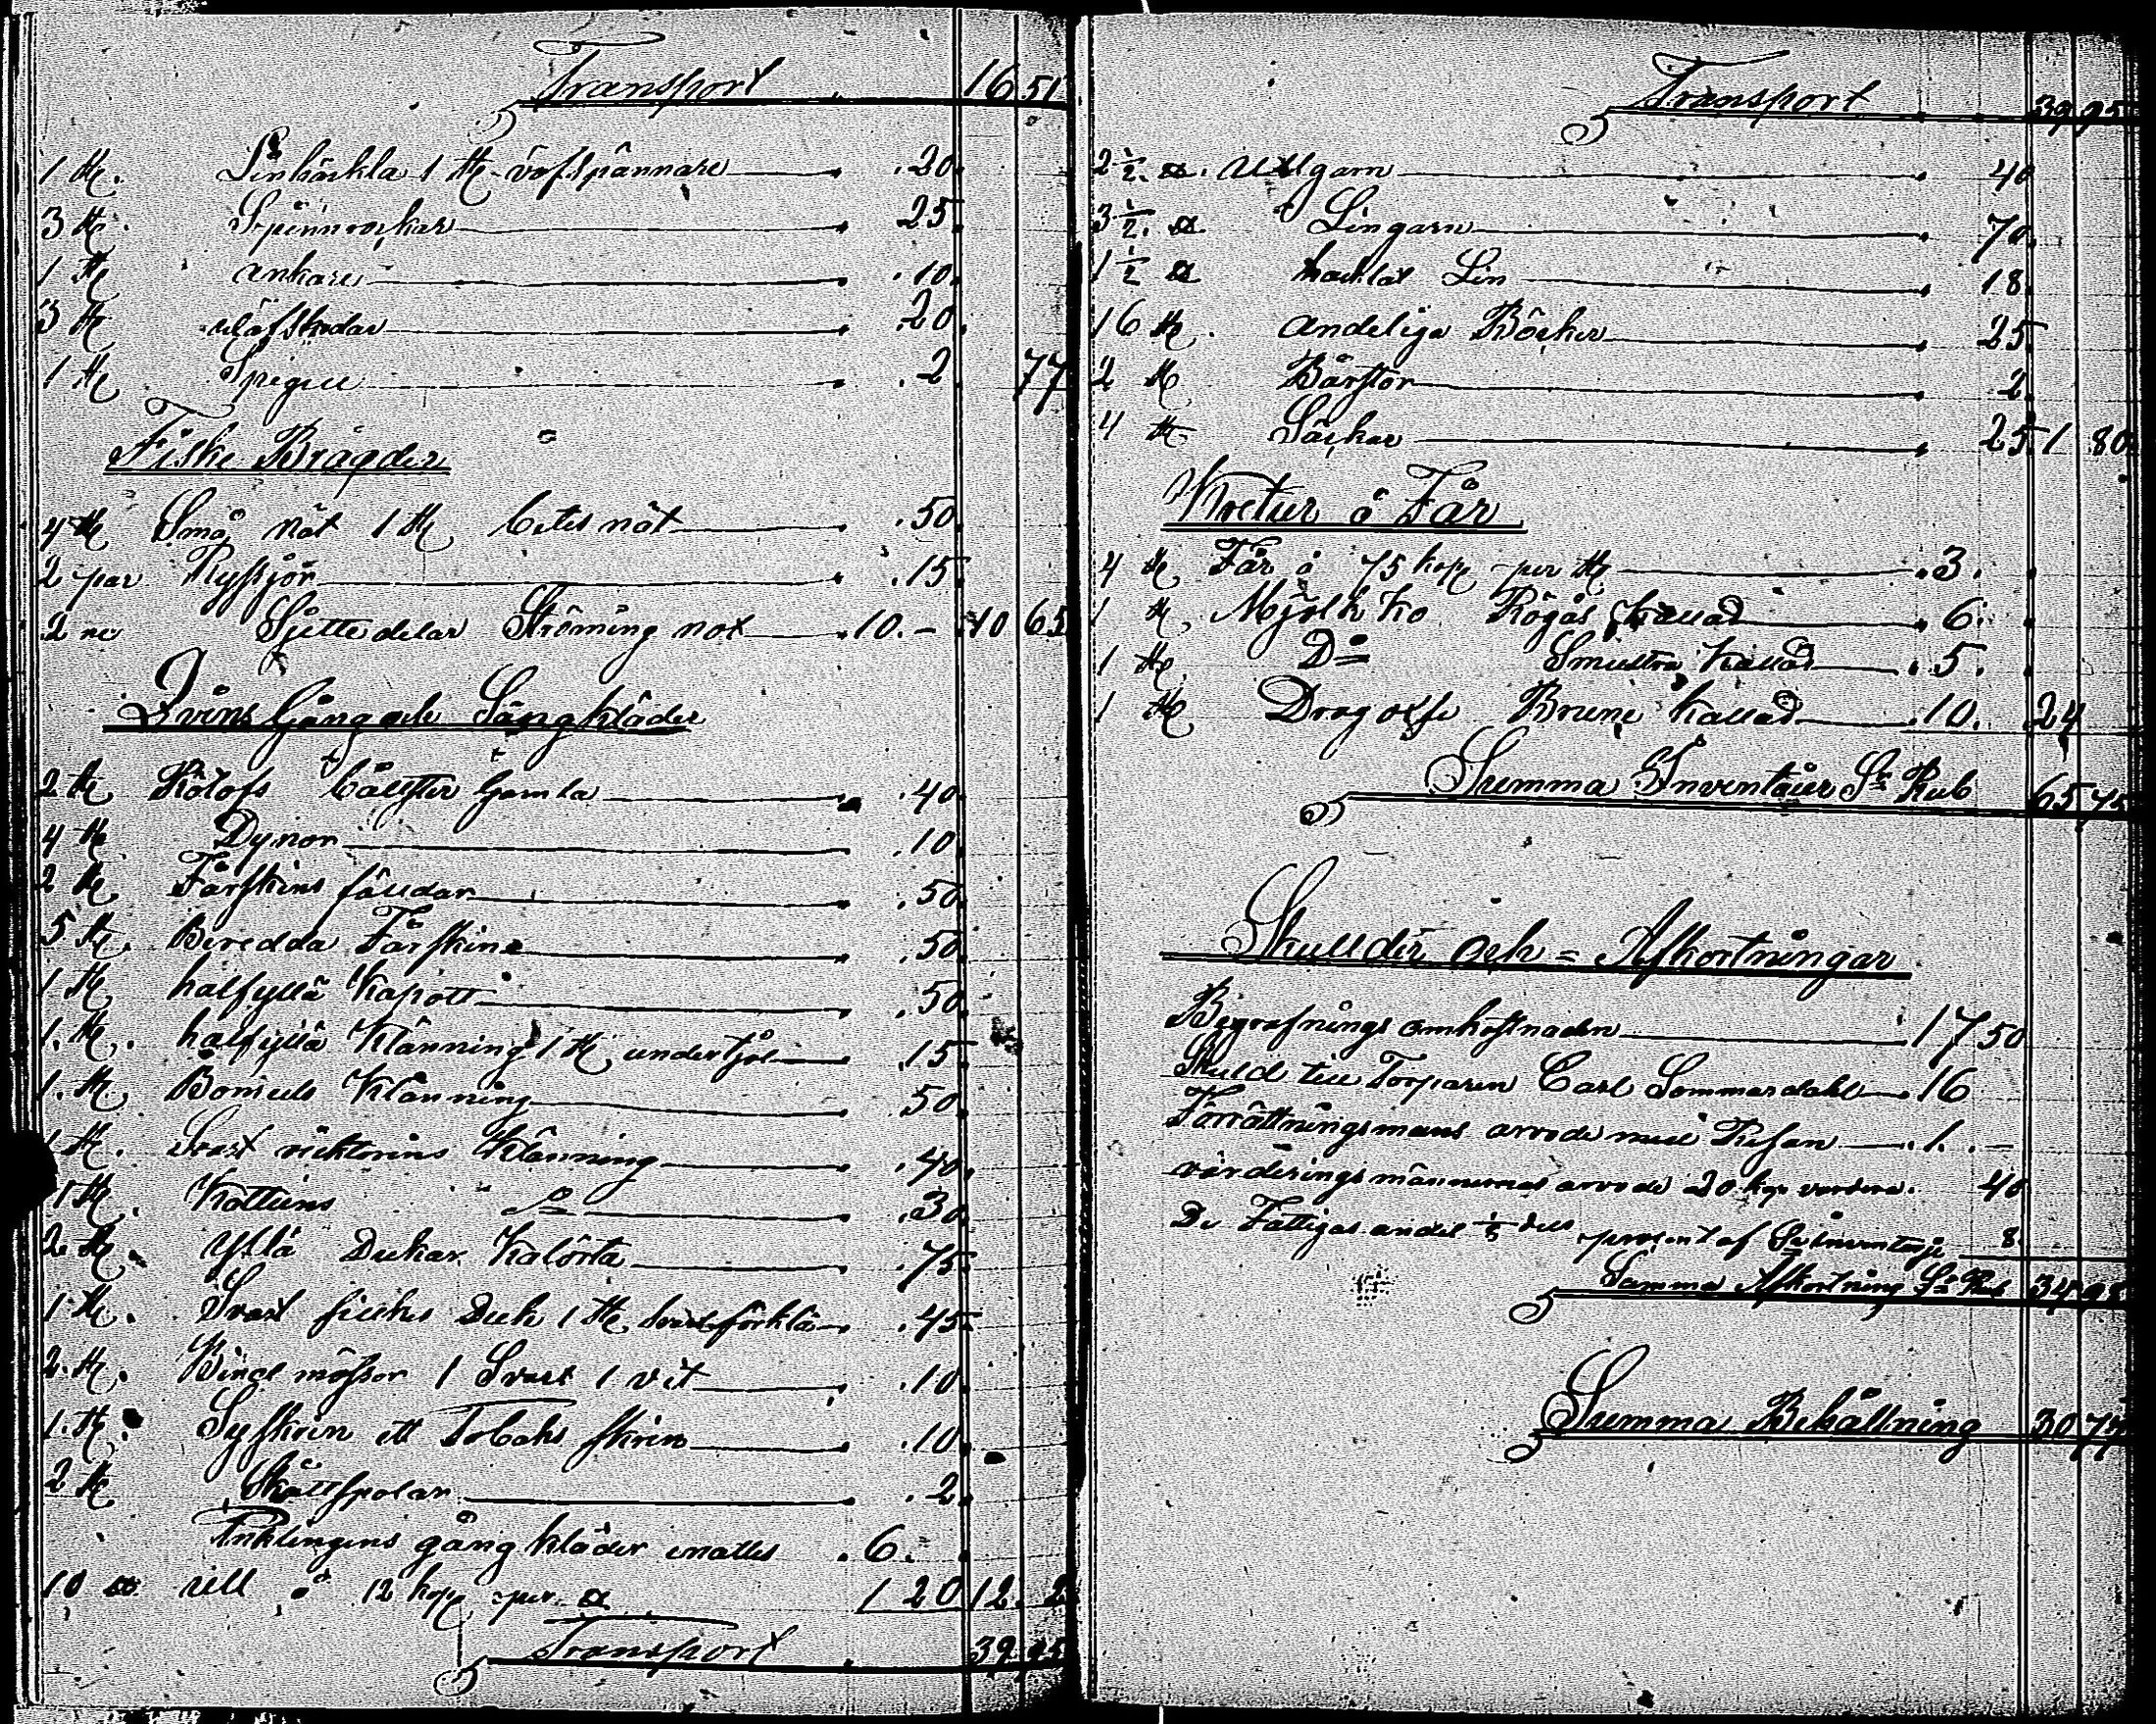 Transport 16 51
1 st. Linhäckla 1 st. väfspännare .20.
3 st. Spinnrockar 25
1 st ankare .10.
3 st väfskedar .20.
1 st Spegel .2 77
Fiske Bragder
4 st Små nät 1 st nät .50
2 par Rysjor .15
2 ne Sjettedelar Strömingnot 10.– 10 65
Gång och Sängkläder
2 st. gamla .40.
4 st. Dynor .10
2 st Fårskins fälldar .50
5 st. Beredda Fårskinn .50
1 st halfylle Kapott .50
1. st. halfylle Klänning 1 st underkjol .15
1. st. Bomuls Klänning .50
1 st. Svart Klänning .40.
1 st. Kattuns Do .30
2. st. Ylle Dukar .75
1 st. Svart silkes Duk 1 st. förklä .45
2. st. Bindmössor 1 Svart 1 vit .10
1. st. Syskrin ett Tobaks skrin .10
2 st Skottspolar .2
Änklingens gångkläder 6.
10 ℔ ull å 12 kop. per ℔ 1 20 12. 2
Transport 39 95
Transport 39 95
2 ½ ℔. Ullgarn 40
3 ½. ℔. Lingarn 70
1 ½ ℔ häcklat Lin 18
16 st. andeliga Böcker 25
2 st Bårstor 2
4 st Säckar 25 1 80
Kretur å Får
4 st Får å 75 kop per st .3.
1 st Mjölk ko Kallad 6.
1 st. Do Kallad .5.
1 st Drag oxe Brune Kallad .10. 24
Summa Inventaier Sr Rub 65 75
Skullder och = Afkortningar
Begrafnings omkostnaden 17 50
Skuld till Torparen Carl Sommardahl 16
Förrättningsmans arvode med Resan .1. –
värderingsmännernas arvode 20 kop vardera. 40
De Fattigas andel ⅛ dels procent af 8
Summa Afkortning Sr Rub 34 98
Summa Behållning 30 77